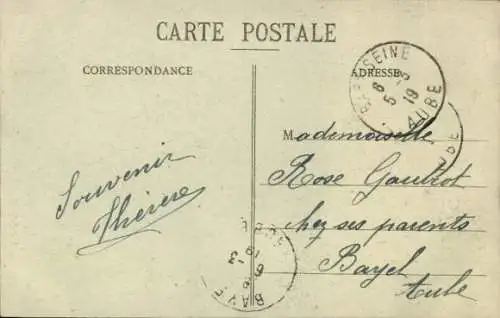 CARTE POSTALE
CORRESPONDANCE
ADRESSE
BAR-S-SEINE
6
5-3
19
AUBE
UBE
Mademoiselle
Rose Gautrot
chez ses parents
Bayel
Aube
Souvenir
Thérèse
6-3
19
BAYE